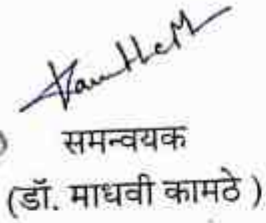 समन्वयक
(डॉ. माधवी कामठे )